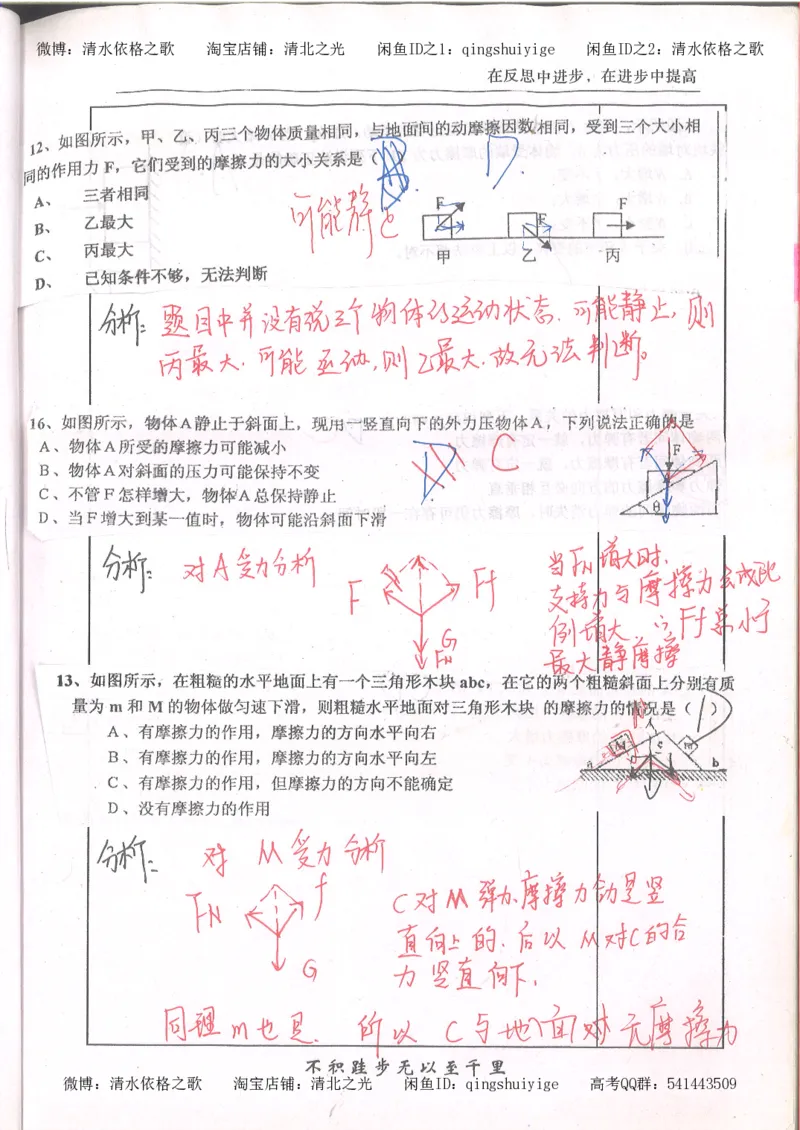 微博：清水依格之歌 淘宝店铺：清北之光 闲鱼ID之1：qingshuiyige 闲鱼ID之2：清水依格之歌
在反思中进步，在进步中提高
12、如图所示，甲、乙、丙三个物体质量相同，与地面间的动摩擦因数相同，受到三个大小相
同的作用力F，它们受到的摩擦力的大小关系是（ ）
D.
A、 三者相同
B、 乙最大
C、 丙最大
D、 已知条件不够，无法判断
可能静止
F F F
甲 乙 丙
分析：题目中并没有说三个物体的运动状态．可能静止，则
丙最大．可能运动，则乙最大．故无法判断。
16、如图所示，物体A静止于斜面上，现用一竖直向下的外力压物体A，下列说法正确的是
A、物体A所受的摩擦力可能减小
B、物体A对斜面的压力可能保持不变
C、不管F怎样增大，物体A总保持静止
D、当F增大到某一值时，物体可能沿斜面下滑
D C
F
θ
分析：对A受力分析
F Ff
G
FN
当FN增大时．
支持力与摩擦力会成比
例增大 ∴Ff总小于
最大静摩擦
13、如图所示，在粗糙的水平地面上有一个三角形木块abc，在它的两个粗糙斜面上分别有质
量为m和M的物体做匀速下滑，则粗糙水平地面对三角形木块 的摩擦力的情况是（D）
A、有摩擦力的作用，摩擦力的方向水平向右
B、有摩擦力的作用，摩擦力的方向水平向左
C、有摩擦力的作用，但摩擦力的方向不能确定
D、没有摩擦力的作用
M c m
a b
分析：对M受力分析
FN f
G
C对M弹力、摩擦力合力是竖
直向上的．后以M对C的合
力竖直向下．
同理m也是．所以C与地面对无摩擦力
不积跬步无以至千里
微博：清水依格之歌 淘宝店铺：清北之光 闲鱼ID：qingshuiyige 高考QQ群：541443509